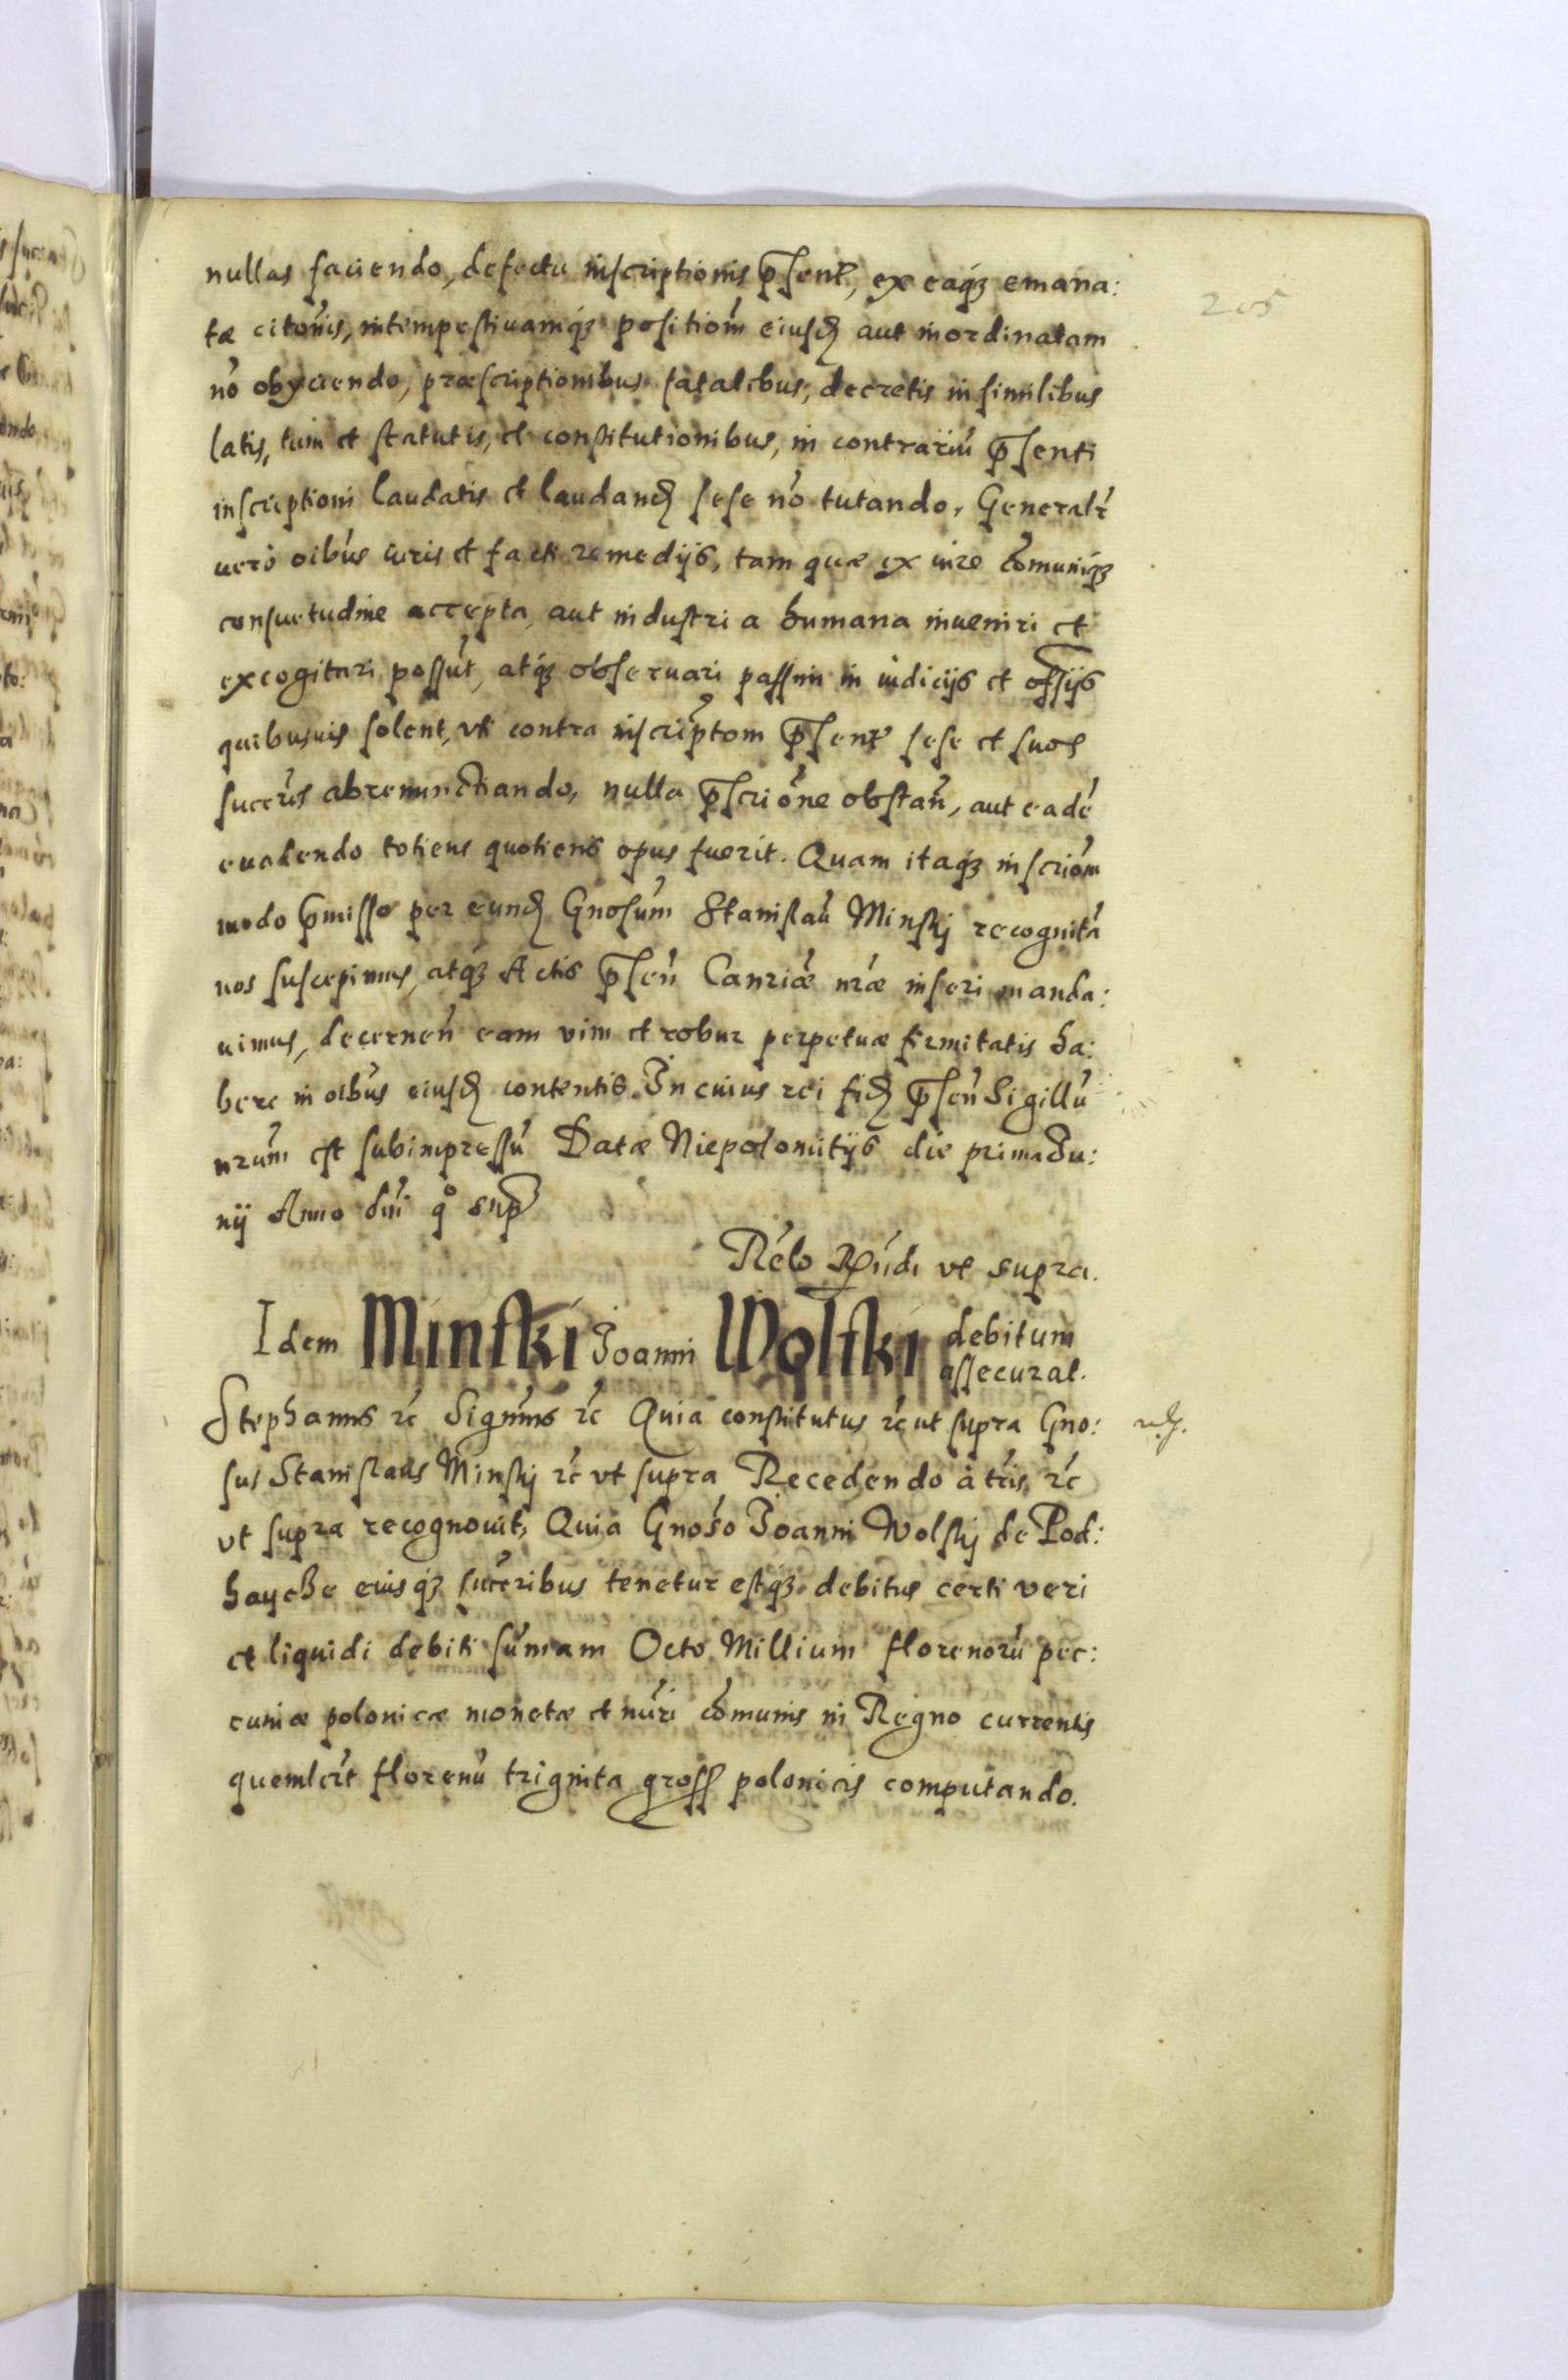 205
nullas faciendo, defectu inscriptionis p̄sent, ex eaq́ꝫ emana:
tæ citõnis, intempestiuamq́ꝫ positiom̃ eiusd aut inordinatam
nõ obyciendo, præscriptionibus fatalibus, decretis in similibus
latis, tum et statutis, et constitutionibus, in contrariũ p̄senti
inscriptioni laudatis et laudand sese nõ tutando, Generalr̃
uerò oĩbus iuris et facti remedijs, tam quæ ex iure cõmuniq́ꝫ
consuetudine accepta, aut industria humana inueniri et
excogitari possũt, atq́ꝫ obseruari passim in iudicijs et offijs
quibusuis solent, vti contra inscriptom̃ p̄sent sese et suos
succr̃is abrenunctiando, nulla p̄scriõne obstañ, aut eadẽ
euadendo totiens quotiens opus fuerit. Quam itaq́ꝫ inscriõm
modo p̄misso per eund Gnosũm Stanislaũ Minskj recognitã
nos suscepimus, atq́ꝫ Actis p̄señ Canriæ̃ nr̃æ inseri manda:
uimus, decerneñ eam vim et robur perpetuæ firmitatis ha:
bere in oĩbus eiusd contentis. In cuius rei fid p̄señ Sigillũ
nrũm est subimpressũ Datæ Niepolomitijs die prima Iu:
nij Anno dñi q̊ sup̄
Rẽlo R̃ndi vt supra.
Idem Minski Joanni Wolski debitum
assecurat.
Stephanus rc̃ Signm̃s rc̃ Quia constitutus rc̃ ut supra Gno:
sus Stanislaũs Minskj rc̃ vt supra Recedendo à tr̃is rc̃
vt supra recognouit, Quia Gnosõ Joanni Wolskj de Pod:
hayche eiusq́ꝫ succr̃ibus tenetur estq́ꝫ debitus certi veri
et liquidi debiti sũmam Octo Millium florenorũ pec:
cuniæ polonicæ monetæ et nũri cõmunis in Regno currentis
quemlr̃t florenũ triginta gross polonicis computando.